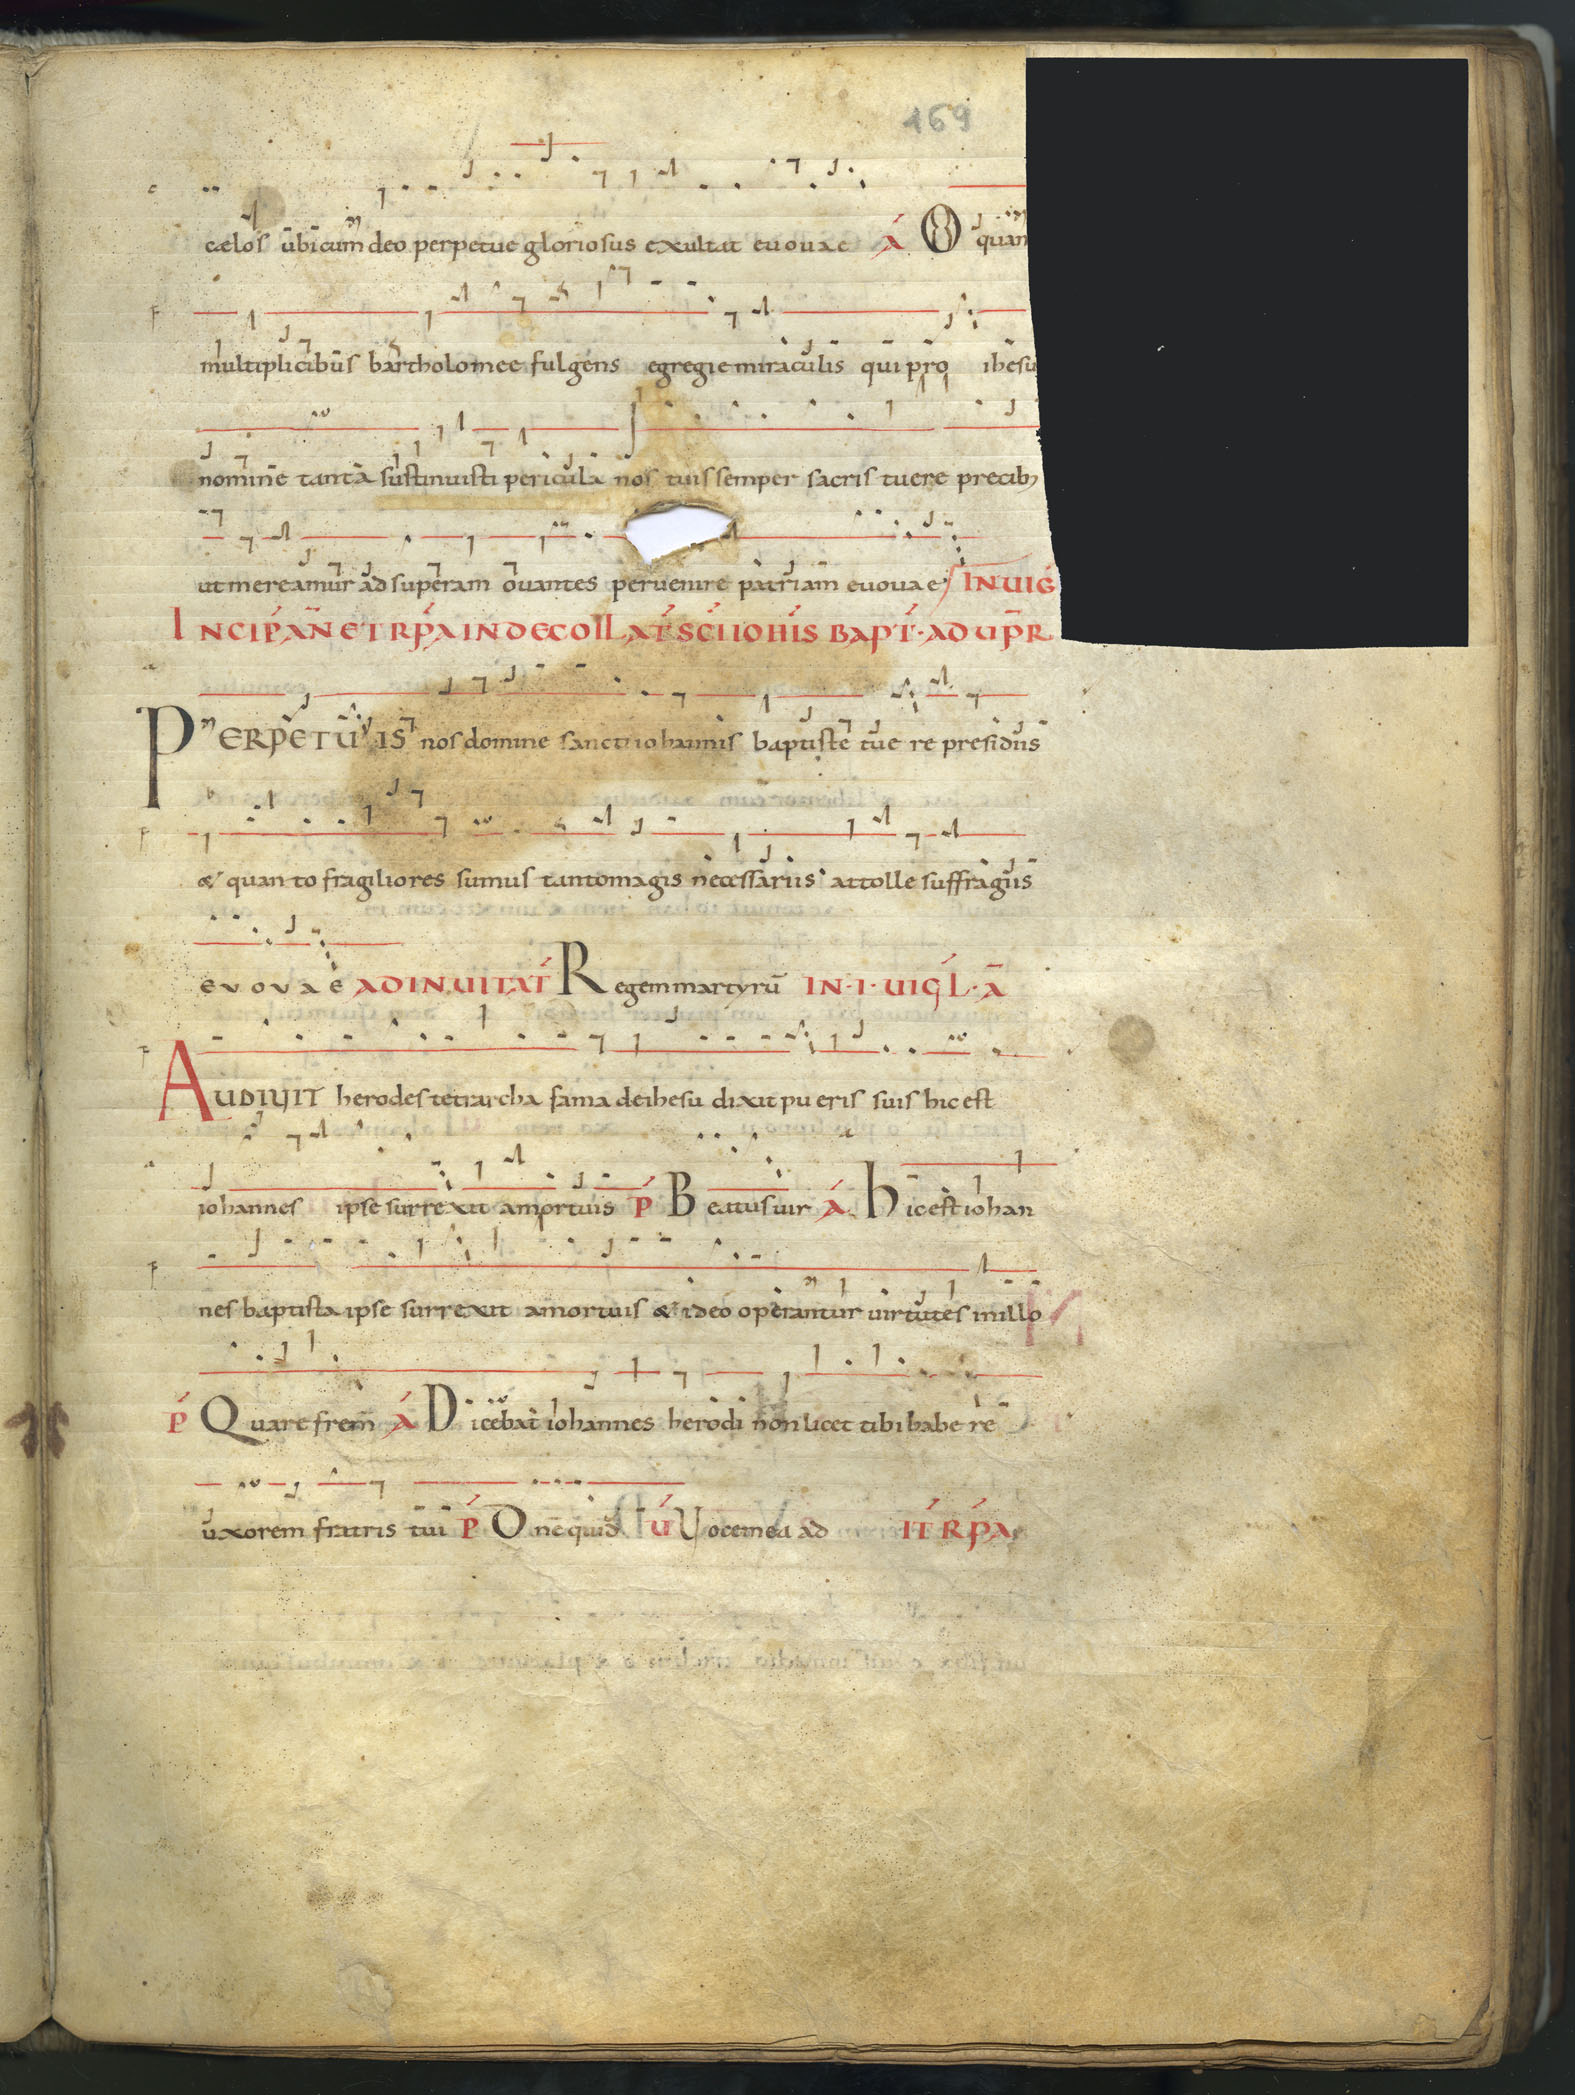 169
cælos ubicum deo perpetue gloriosus exultat euouae A O quan
multiplicibus bartholomee fulgens egregie miraculis qui pro ihesu
nomine tanta sustinuisti pericula nos tuis semper sacris tuere precib;
ut mereamur ad superam ouantes peruenire patriam euouae IN UIG
INCIP AN̄ ET RP̄A IN DECOLLAT SC̄I IOHIS BAPT· AD UP̄R
PERPETUIS nos domine sancti iohannis baptiste tue re presidiis
& quanto fragiliores sumus tanto magis necessariis attolle suffragiis
euouae AD INUITAT Regem martyrū IN·I·UIGL·Ā
AUDIUIT herodes tetrarcha fama de ihesu dixit pueris suis hic est
iohannes ipse surrexit amortuis P Beatus uir A Hic est iohan
nes baptista ipse surrexit amortuis & ideo operantur uirtutes in illo
P Quare frem̄ A Dicebat iohannes herodi non licet tibi habere
uxorem fratris tui P Dn̄e quid U Uoce mea ad IT RP̄A